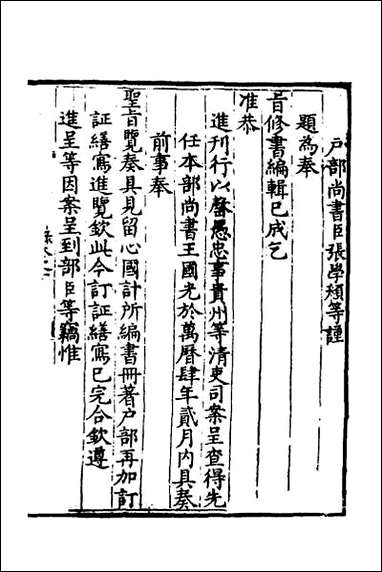 戶部尚書臣張學顏等謹
題為奉
旨修書編輯已成乞
准恭
進刊行以罄愚忠事貴州等清吏司案呈查得先
任本部尚書王國光於萬曆肆年貳月內具奏
前事奉
聖旨覽奏具見留心國計所編書冊著戶部再加訂
証繕寫進覽欽此今訂証繕寫已完合欽遵
進呈等因案呈到部臣等竊惟